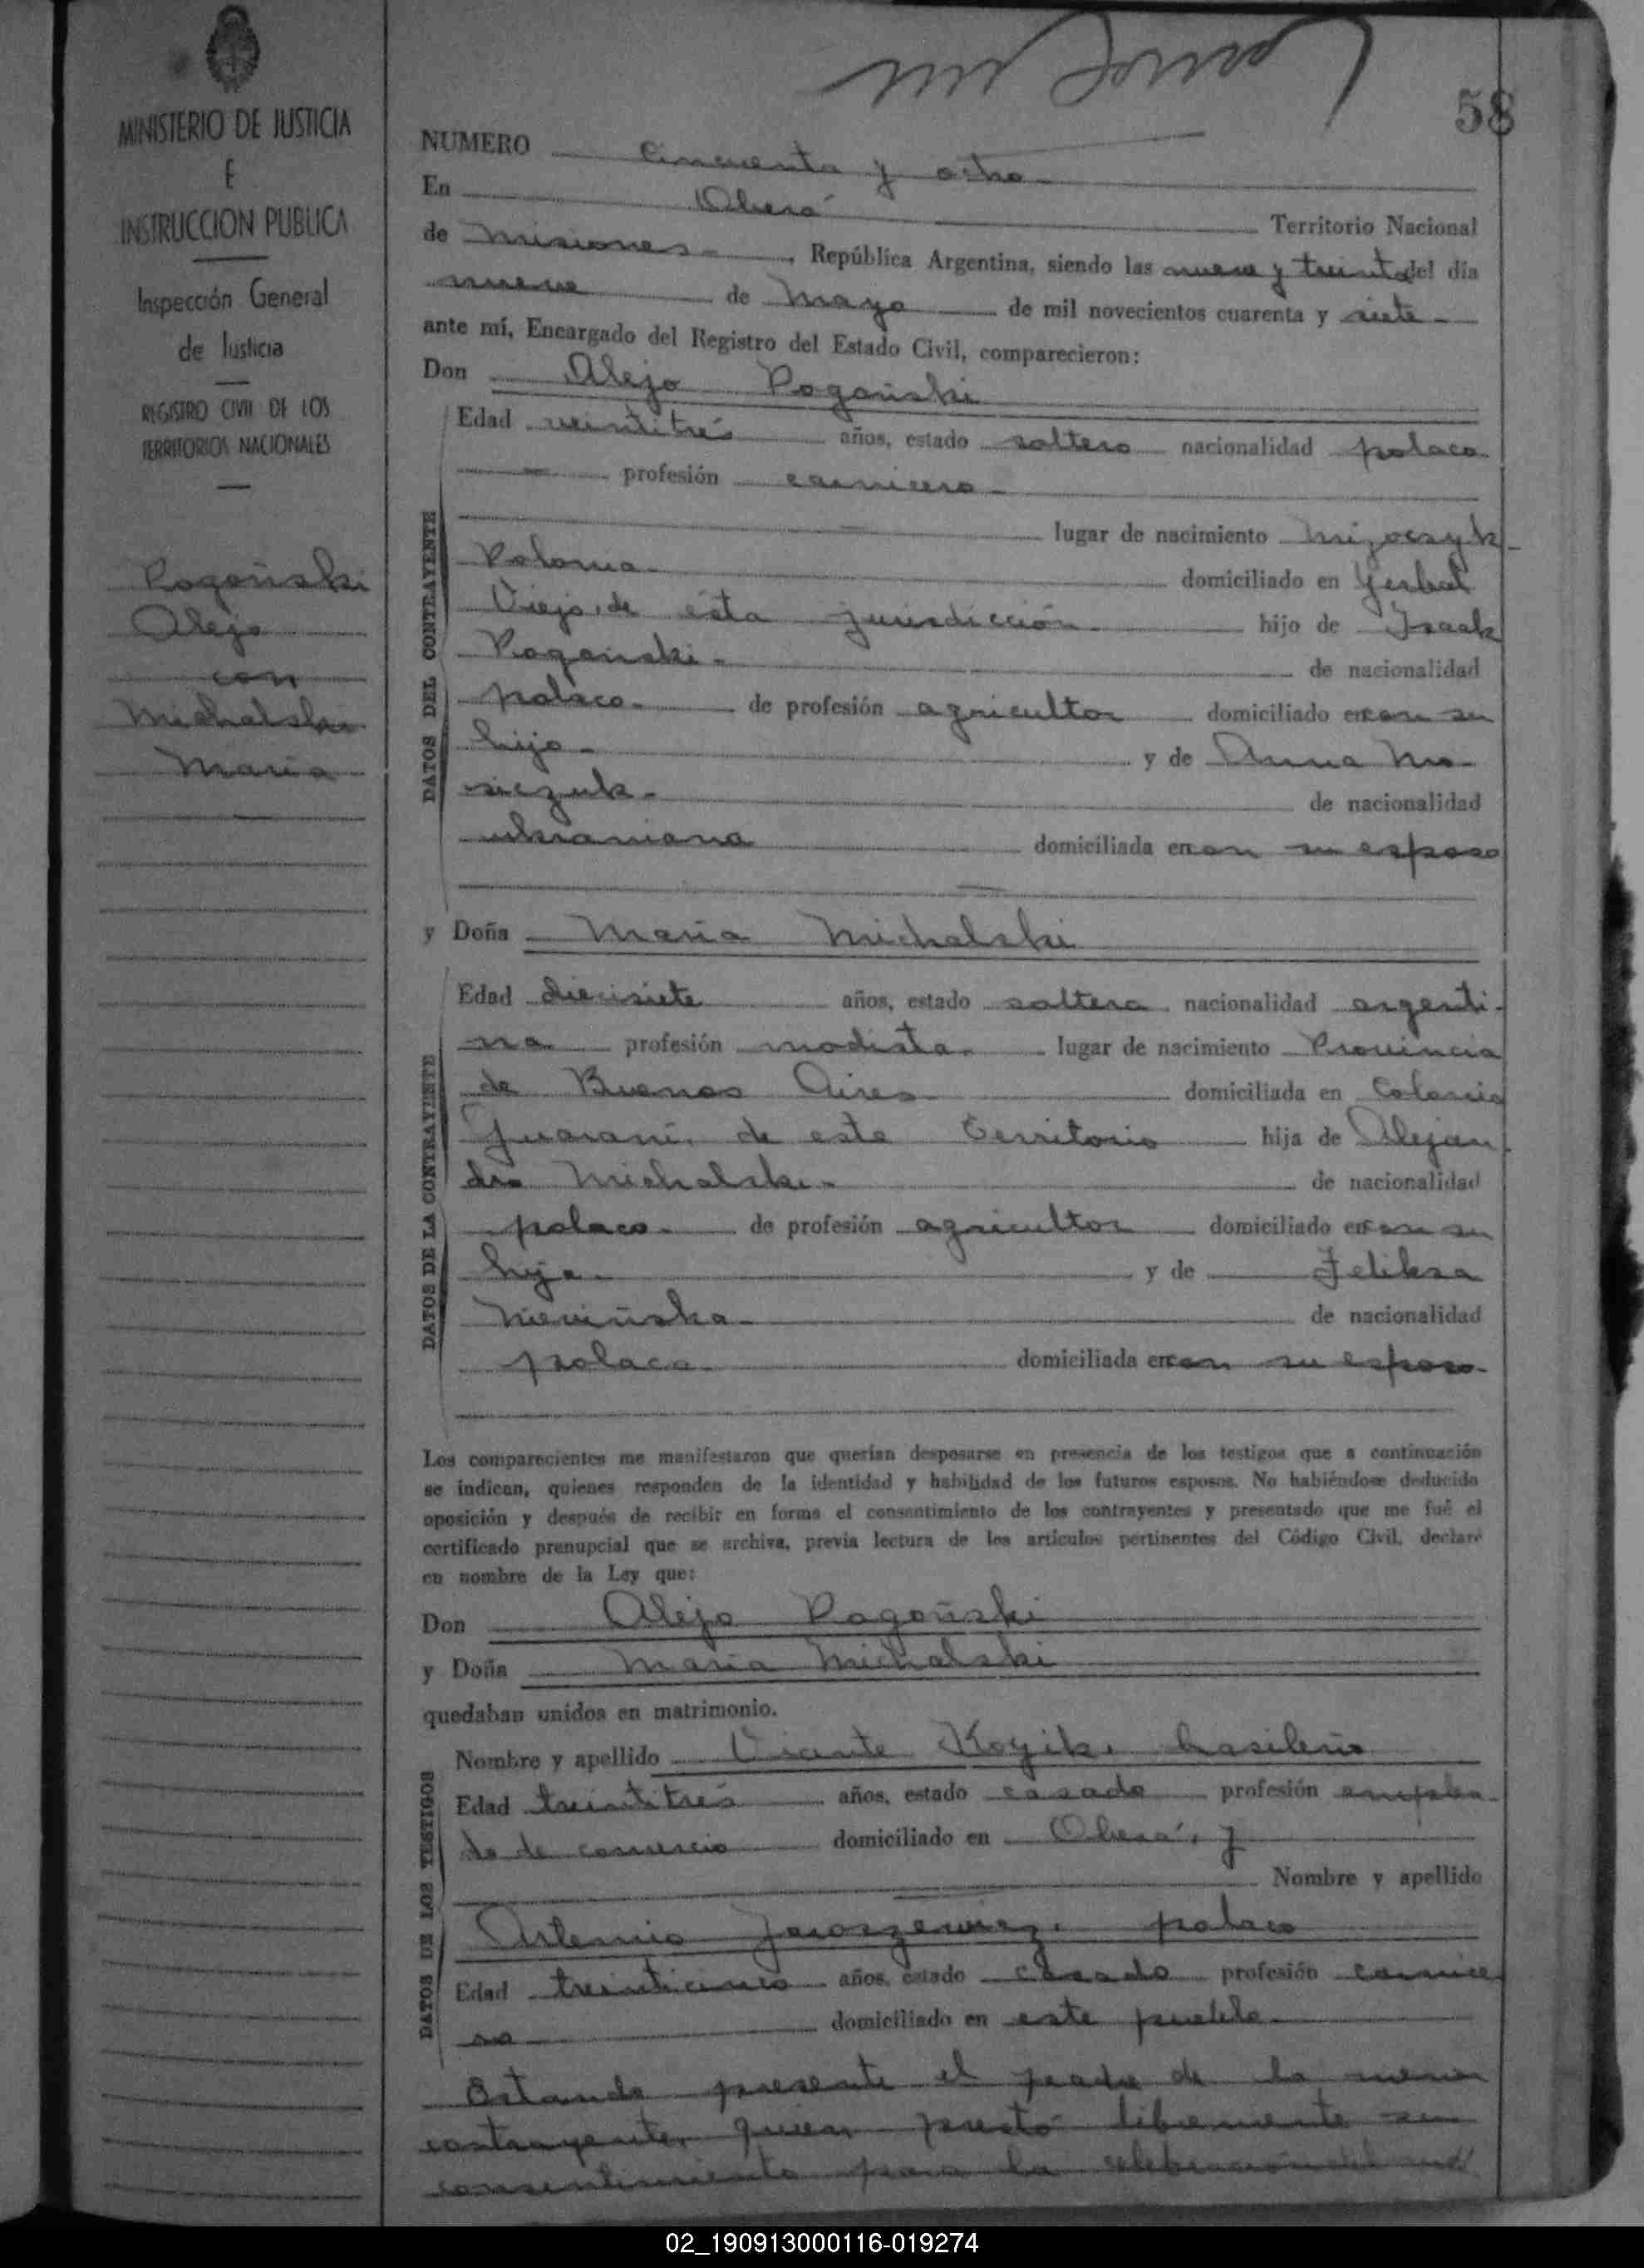 MINISTERIO DE JUSTICIA
E
INSTRUCCION PUBLICA
Inspección General
de Justicia
REGISTRO CIVIL DE LOS
TERRITORIOS NACIONALES
Rogoñski
Alejo
con
Michalski
Maria
58
NUMERO cincuenta y ocho
En Oberá Territorio Nacional
de Misiones, República Argentina, siendo las nueve y treinta del día
nueve de Mayo de mil novecientos cuarenta y siete
ante mí, Encargado del Registro del Estado Civil, comparecieron:
Don Alejo Rogoñski
Edad veintitrés años, estado soltero nacionalidad polaco
profesión carnicero
DATOS DEL CONTRAYENTE
lugar de nacimiento Mizoczyk
Polonia domiciliado en Yerbal
Viejo, de ésta jurisdicción hijo de Isaak
Rogoñski de nacionalidad
polaco de profesión agricultor domiciliado en con su
hijo y de Anna Mo-
siczuk de nacionalidad
ukraniana domiciliada en con su esposo
y Doña Maria Michalski
DATOS DE LA CONTRAYENTE
Edad diecisiete años, estado soltera nacionalidad argenti-
na profesión modista lugar de nacimiento Provincia
de Buenos Aires domiciliada en Colonia
Guaraní, de este Territorio hija de Alejan
dro Michalski de nacionalidad
polaco de profesión agricultor domiciliado en con su
hija y de Feliksa
de nacionalidad
polaca domiciliada en con su esposo
Los comparecientes me manifestaron que querían desposarse en presencia de los testigos que a continuación
se indican, quienes responden de la identidad y habilidad de los futuros esposos. No habiéndose deducido
oposición y después de recibir en forma el consentimiento de los contrayentes y presentado que me fué el
certificado prenupcial que se archiva, previa lectura de los artículos pertinentes del Código Civil, declaré
en nombre de la Ley que:
Don Alejo Rogoñski
y Doña Maria Michalski
quedaban unidos en matrimonio.
DATOS DE LOS TESTIGOS
Nombre y apellido Vicente Koyik, brasileño
Edad treintitrés años, estado casado profesión emplea-
do de comercio domiciliado en Oberá, y
Nombre y apellido
Artemio Jaroszewicz, polaco
Edad treinticinco años, estado casado profesión carnice
ro domiciliado en este pueblo
Estando presente el padre de la menor
contrayente, quien prestó libremente su
consentimiento para la celebración del
02_190913000116-019274